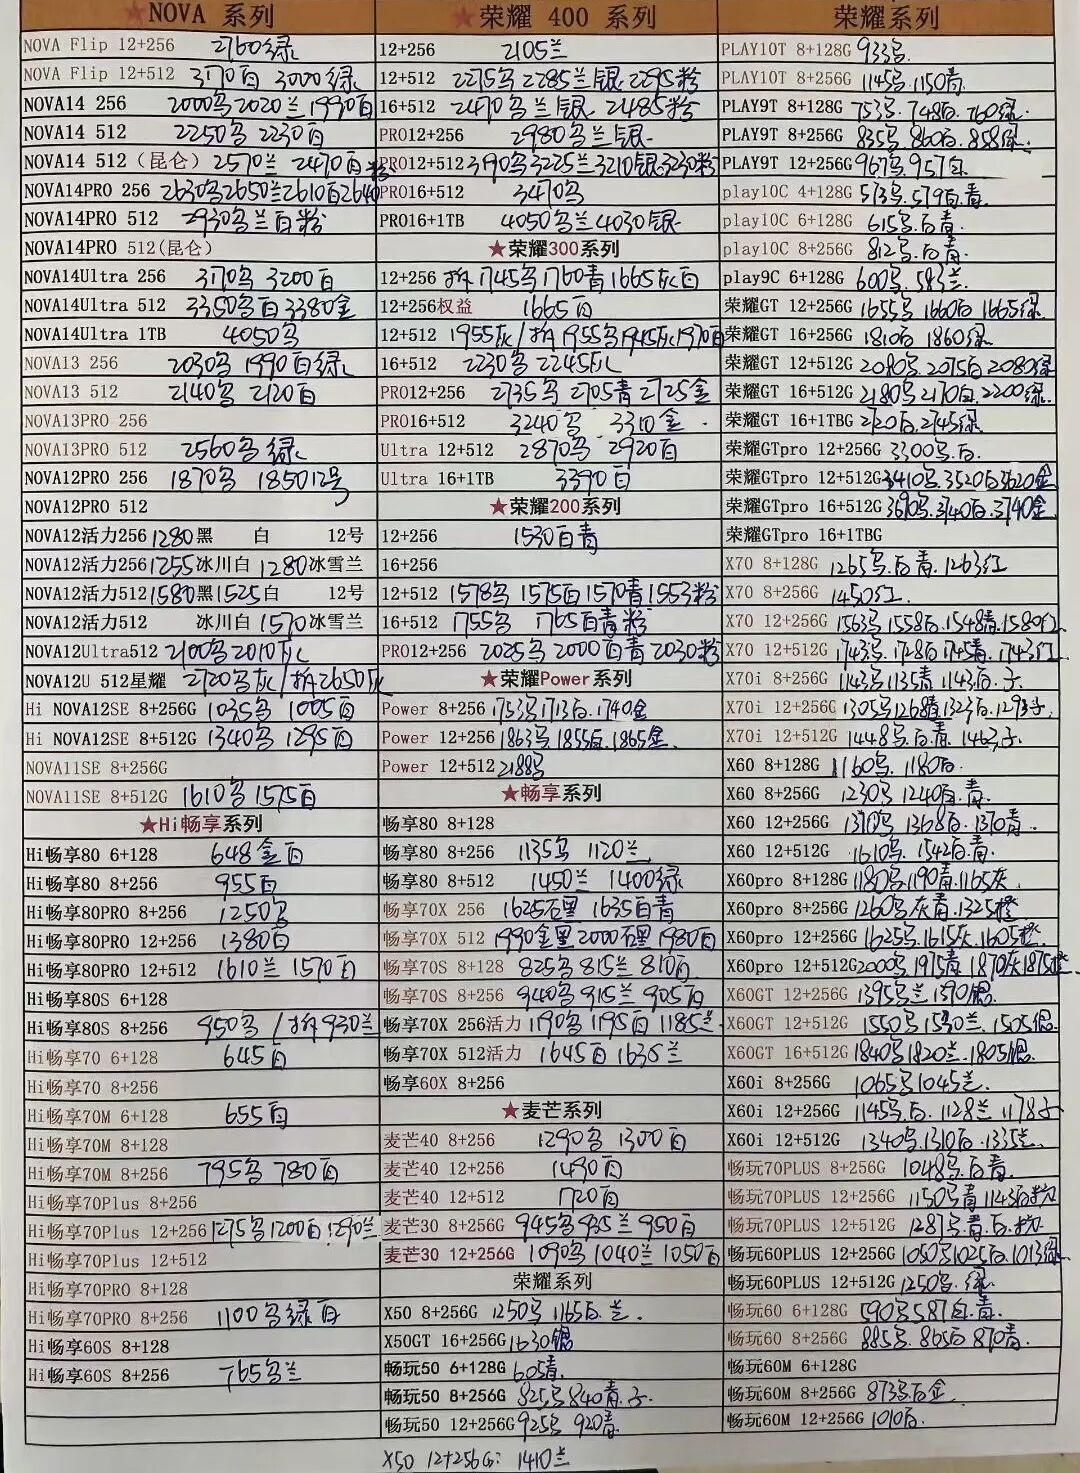 ★NOVA 系列
NOVA Flip 12+256 2760绿
NOVA Flip 12+512 3170白 3000绿
NOVA14 256 2000乌 2020兰 1990白
NOVA14 512 2250乌 2230白
NOVA14 512（昆仑）2570兰 2470白粉
NOVA14PRO 256 2630乌 2650兰 2610白 2640
NOVA14PRO 512 2930乌兰白粉
NOVA14PRO 512(昆仑)
NOVA14Ultra 256 3170乌 3200白
NOVA14Ultra 512 3350乌白 3380金
NOVA14Ultra 1TB 4050乌
NOVA13 256 2030乌 1990白绿
NOVA13 512 2140乌 2120白
NOVA13PRO 256
NOVA13PRO 512 2560乌 绿
NOVA12PRO 256 1870乌 1850 12号
NOVA12PRO 512
NOVA12活力256 1280黑 白 12号
NOVA12活力256 1255冰川白 1280冰雪兰
NOVA12活力512 1580黑 1525白 12号
NOVA12活力512 冰川白 1570冰雪兰
NOVA12Ultra512 2100乌 2010灰
NOVA12U 512星耀 2720乌灰/拆2650灰
Hi NOVA12SE 8+256G 1035乌 1005白
Hi NOVA12SE 8+512G 1340乌 1295白
NOVA11SE 8+256G
NOVA11SE 8+512G 1610乌 1575白
★Hi畅享系列
Hi畅享80 6+128 648金白
Hi畅享80 8+256 955白
Hi畅享80PRO 8+256 1250乌
Hi畅享80PRO 12+256 1380白
Hi畅享80PRO 12+512 1610兰 1570白
Hi畅享80S 6+128
Hi畅享80S 8+256 950乌/拆930兰
Hi畅享70 6+128 645白
Hi畅享70 8+256
Hi畅享70M 6+128 655白
Hi畅享70M 8+128
Hi畅享70M 8+256 795乌 780白
Hi畅享70Plus 8+256
Hi畅享70Plus 12+256 1275乌 1200白 1290兰
Hi畅享70Plus 12+512
Hi畅享70PRO 8+128
Hi畅享70PRO 8+256 1100乌绿白
Hi畅享60S 8+128
Hi畅享60S 8+256 765乌兰
★荣耀 400 系列
12+256 2105兰
12+512 2275乌 2285兰银 2295粉
16+512 2470乌兰银 2485粉
PRO12+256 2980乌兰银
PRO12+512 3190乌 3225兰 3210银 3230粉
PRO16+512 3470乌
PRO16+1TB 4050乌兰 4030银
★荣耀300系列
12+256 拆1745乌 1760青 1665灰白
12+256权益 1665白
12+512 1955灰/拆1955乌 1945灰 1970白
16+512 2230乌 2245灰
PRO12+256 2735乌 2705青 2725金
PRO16+512 3240乌 3310金
Ultra 12+512 2870乌 2920白
Ultra 16+1TB 3390白
★荣耀200系列
12+256 1530白青
16+256
12+512 1578乌 1575白 1570青 1553粉
16+512 1755乌 1765白青粉
PRO12+256 2025乌 2000白青 2030粉
★荣耀Power系列
Power 8+256 1753乌 1713白 1740金
Power 12+256 1863乌 1855白 1865金
Power 12+512 2188乌
★畅享系列
畅享80 8+128
畅享80 8+256 1135乌 1120兰
畅享80 8+512 1450兰 1400绿
畅享70X 256 1625石墨 1635白青
畅享70X 512 1990金墨 2000石墨 1980白
畅享70S 8+128 825乌 815兰 810白
畅享70S 8+256 940乌 915兰 905白
畅享70X 256活力 1190乌 1195白 1185兰
畅享70X 512活力 1645白 1635兰
畅享60X 8+256
★麦芒系列
麦芒40 8+256 1290乌 1300白
麦芒40 12+256 1490白
麦芒40 12+512 1720白
麦芒30 8+256G 945乌 935兰 950白
麦芒30 12+256G 1090乌 1040兰 1050白
荣耀系列
X50 8+256G 1250乌 1165白.兰.
X50GT 16+256G 1630银
畅玩50 6+128G 605青.
畅玩50 8+256G 825乌 840青.子.
畅玩50 12+256G 925乌 920青.
X50 12+256G: 1410兰
荣耀系列
PLAY10T 8+128G 933乌.
PLAY10T 8+256G 1145乌.1150青.
PLAY9T 8+128G 753乌.748白.760绿.
PLAY9T 8+256G 835乌.860白.858绿.
PLAY9T 12+256G 967乌.957白.
play10C 4+128G 573乌.579白.青.
play10C 6+128G 615乌.白.青.
play10C 8+256G 812乌.白.青.
play9C 6+128G 600乌.583兰.
荣耀GT 12+256G 1655乌 1660白 1665绿.
荣耀GT 16+256G 1810白 1860绿
荣耀GT 12+512G 2080乌.2075白.2080绿
荣耀GT 16+512G 2180乌.2170白.2200绿.
荣耀GT 16+1TBG 2720白.2745绿
荣耀GTpro 12+256G 3300乌.白.
荣耀GTpro 12+512G 3410乌.3520白.3620金
荣耀GTpro 16+512G 3690乌.3740白.3740金.
荣耀GTpro 16+1TBG
X70 8+128G 1265乌.白.青.1263红
X70 8+256G 1450红.
X70 12+256G 1563乌.1558白.1548青.1580红
X70 12+512G 1743乌.1728白.1745青.1743红
X70i 8+256G 1143乌 1135青 1143白.子.
X70i 12+256G 1305乌 1268青 1323白.1293子.
X70i 12+512G 1448乌.白.青.
X60 8+128G 1160乌.1180白.
X60 8+256G 1230乌 1240白.青.
X60 12+256G 1370乌 1368白.1370青.
X60 12+512G 1610乌.1542白.青.
X60pro 8+128G 1180乌 1190青.1165灰
X60pro 8+256G 1260乌.灰青.1325橙
X60pro 12+256G 1625乌.1615灰.1605橙.
X60pro 12+512G 2000乌.1975青 1870灰 1875橙.
X60GT 12+256G 1395乌兰 1390银.
X60GT 12+512G 1550乌 1530兰.1505银.
X60GT 16+512G 1840乌 1820兰.1805银.
X60i 8+256G 1065乌 1045兰.
X60i 12+256G 1145乌.白.1128兰 1178子
X60i 12+512G 1340乌.1310白.1335兰.
畅玩70PLUS 8+256G 1048乌.白青.
畅玩70PLUS 12+256G 1150乌青 1143白
畅玩70PLUS 12+512G 1287乌.青.白.
畅玩60PLUS 12+256G 1050乌 1025白.1013绿.
畅玩60PLUS 12+512G 1250乌.绿.
畅玩60 6+128G 590乌 587白.青.
畅玩60 8+256G 885乌.865白 870青
畅玩60M 6+128G
畅玩60M 8+256G 873乌白金.
畅玩60M 12+256G 1010白.